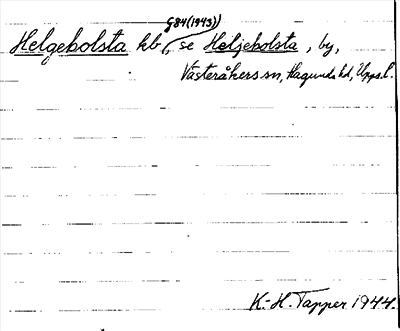 G84(1943))
Helgebolsta hb (, se Heljebolsta, by,
Västeråkers sn, Hagunda hd, Upps.l.
K.-H. Tapper 1944.